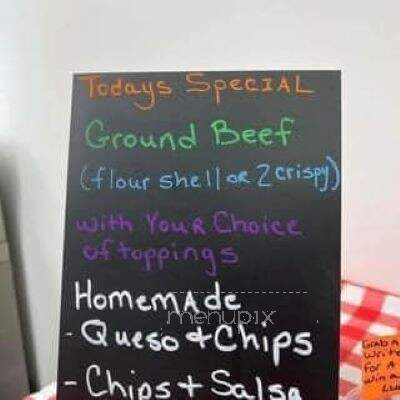 Todays SpecIAL
Ground Beef
(flour shell or 2 crispy)
with Your Choice
of toppings
HomemAde
- Queso + Chips
menupix
- Chips + Salsa
Grab A
Write
For A
win a